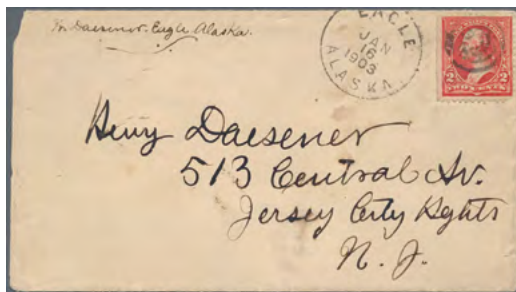 Daesener. Eagle Alaska.
EAGLE
JAN
16
1903
ALASKA
2 2
TWO CENTS
Henry Daesener
513 Central Av.
Jersey City Hghts
N. J.